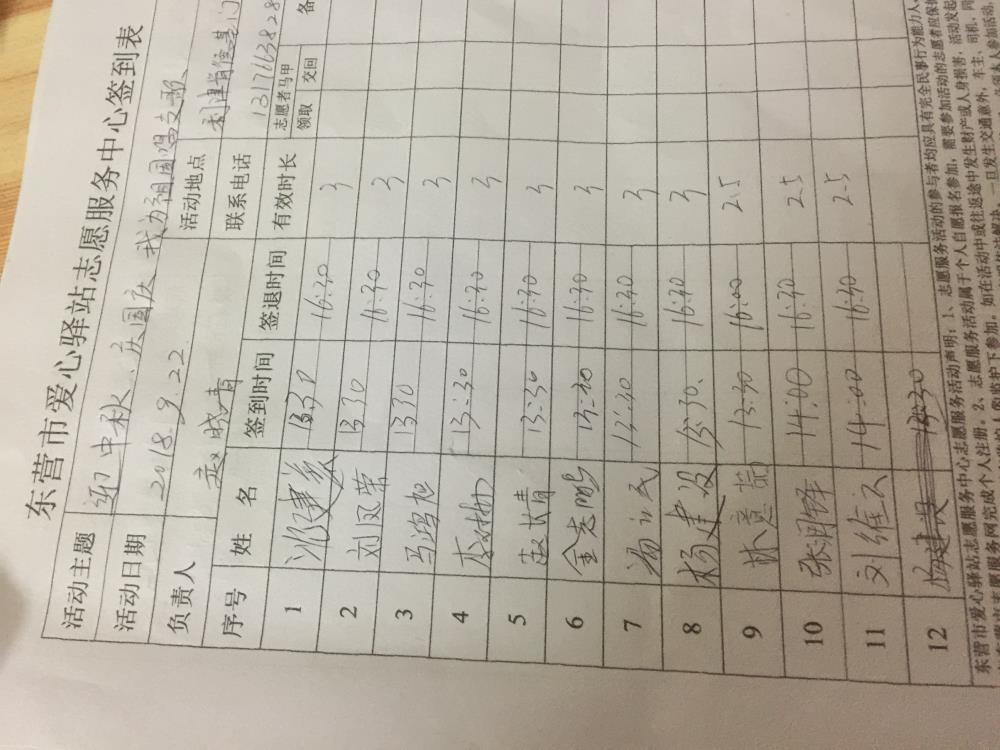 东营市爱心驿站志愿服务中心签到表
活动主题 迎中秋、庆国庆 我为祖国唱支歌
活动日期 2018.9.22 活动地点
负责人 赵晓青 联系电话 1317663828
序号 姓名 签到时间 签退时间 有效时长 志愿者马甲 领取 交回 备
1 13:30 16:30 3
2 刘凤荣 13:30 16:30 3
3 马鸿旭 13:30 16:30 3
4 李楠 13:30 16:30 3
5 13:30 16:30 3
6 金志鹏 13:30 16:30 3
7 13:30 16:30 3
8 杨建设 13:30 16:30 3
9 林 13:30 16:00 2.5
10 张润泽 14:00 16:30 2.5
11 刘维 14:00 16:30 2.5
12 13:30
东营市爱心驿站志愿服务中心志愿服务活动声明：1、志愿服务活动的参与者均应具有完全民事行为能力人
志愿服务网完成个人注册。2、志愿服务活动属于个人自愿报名参加，需要参加活动的志愿者应保
如在活动中或往返途中发生财产或人身损害，活动发起
一旦发生交通意外，车主、司机、同